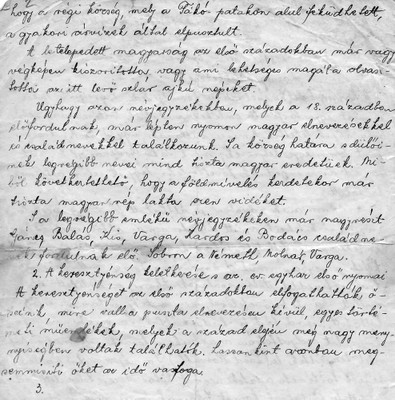 hogy a régi község, mely a Tákó patakon alul feküdhetett,
a gyakori árvizek által elpusztult.
A letelepedett magyarság az első századokban már vagy
végképen kiszorította, vagy ami lehetséges magába olvasz-
totta az itt levő szláv ajkú népeket.
Ugyhogy azon névjegyzékekben, melyek a 18. században
előfordulnak, már lépten nyomon magyar elnevezésekkel
és családnevekkel találkozunk. S a község határa s dülői-
nek legrégibb nevei mind tiszta magyar eredetüek. Mi-
ből következtethető, hogy a földmüvelés kezdetekor már
tiszta magyar nép lakta ezen vidéket.
S a legrégibb emlékü névjegyzékeken már nagyrészt
Balás, Kis, Varga, Kardos és Bodács családne-
vek fordulnak elő. Németh, Molnár, Varga.
2. A kereszténység keletkezése s az ev. egyház első nyomai
A kereszténységet az első századokban elfogadhatták ő-
seink, mire vall a puszta elnevezésen kivül, egyes törté-
neti müemlékek, melyek a század elején még nagy meny-
nyiségben voltak találhatók. Lassankint azonban meg-
semmisíti őket az idő vasfoga.
3.